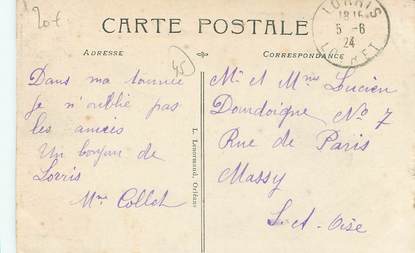 20f
CARTE POSTALE
ADRESSE
CORRESPONDANCE
LORRIS
18 15
5 - 6
24
LOIRET
45
Dans ma tournée
Je n'oublie pas
les amies
Un bonjour de
Lorris
Mme Collet
L. Lenormand, Orléans
Mr et Mme Lucien
Dourdoigne No 7
Rue de Paris
Massy
S. et Oise